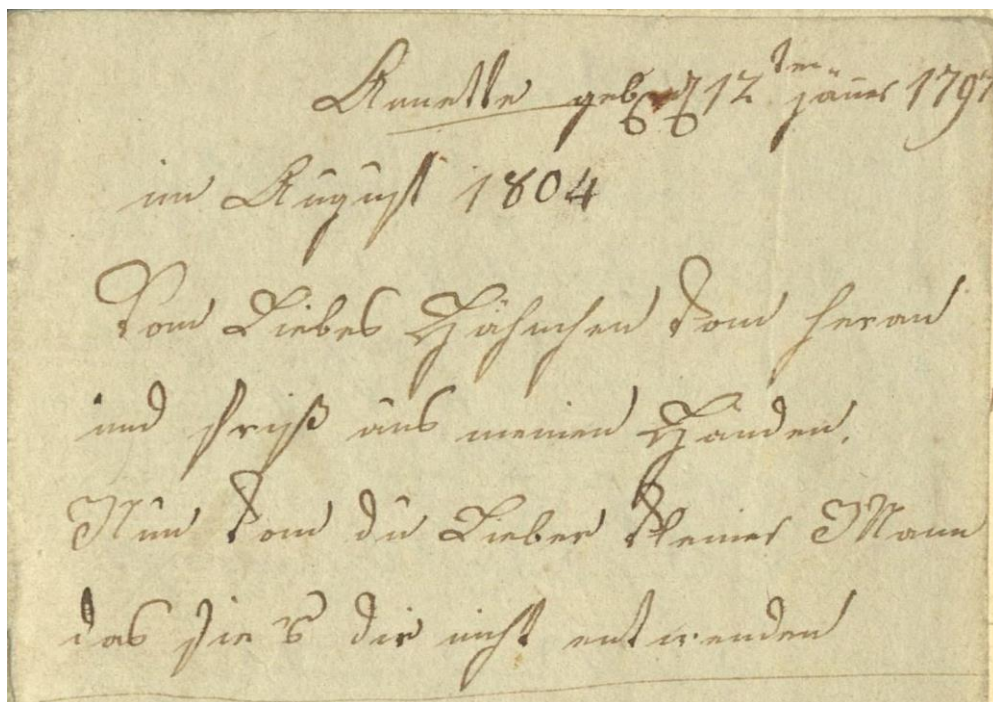 Annette geb d 12ten jäner 1797
im August 1804
Kom Liebes Hähnchen kom heran
und friß aus meinen Händen.
Nun kom du Lieber kleiner Mann
das sie's dir nicht entwenden